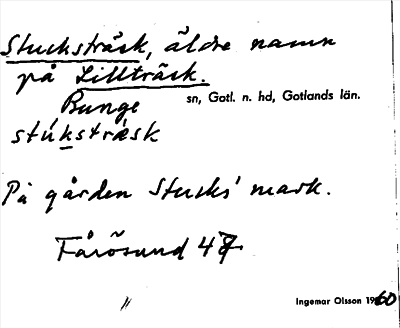 Stucksträsk, äldre namn
på Lillträsk.
Bunge sn, Gotl. n. hd, Gotlands län.
stúkstræsk
På gården Stucks' mark.
Fårösund 47
"
Ingemar Olsson 1960